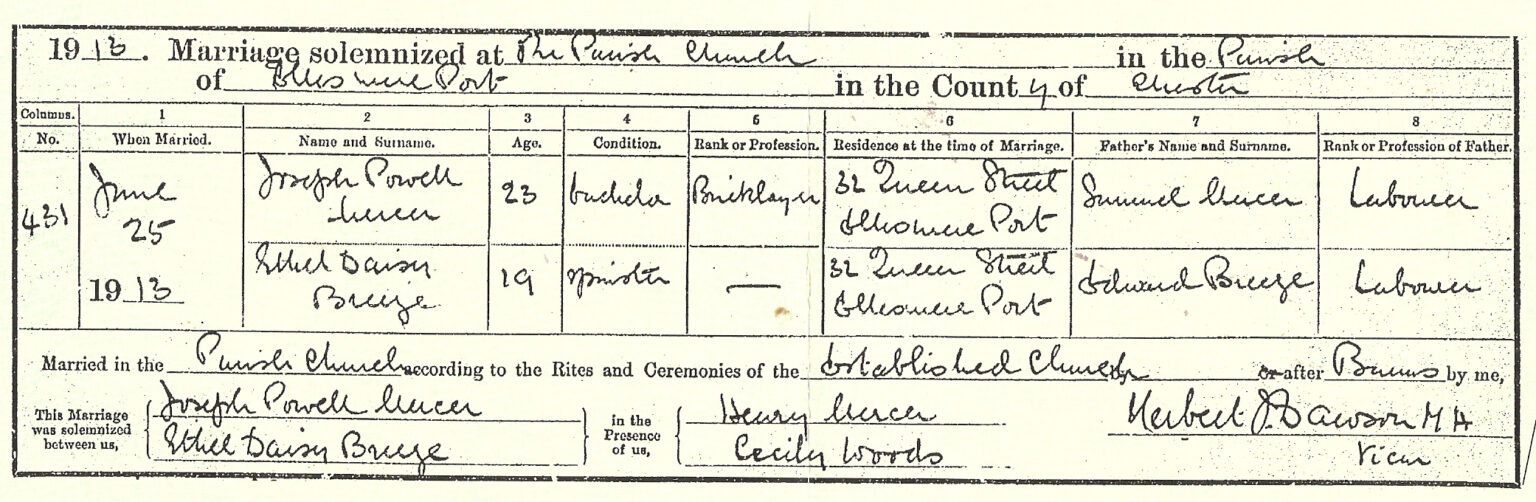 1913. Marriage solemnized at The Parish Church in the Parish
of Ellesmere Port in the County of Chester
Columns. 1 2 3 4 5 6 7 8
No. When Married. Name and Surname. Age. Condition. Rank or Profession. Residence at the time of Marriage. Father's Name and Surname. Rank or Profession of Father.
431 June 25 1913
Joseph Powell Mercer 23 bachelor Bricklayer 32 Queen Street Ellesmere Port Samuel Mercer Labourer
Ethel Daisy Breeze 19 spinster — 32 Queen Street Ellesmere Port Edward Breeze Labourer
Married in the Parish Church according to the Rites and Ceremonies of the Established Church by, or after Banns by me,
This Marriage was solemnized between us, Joseph Powell Mercer in the Presence of us, Henry Mercer Herbert J. Dawson M A
Ethel Daisy Breeze Cecily Woods Vicar